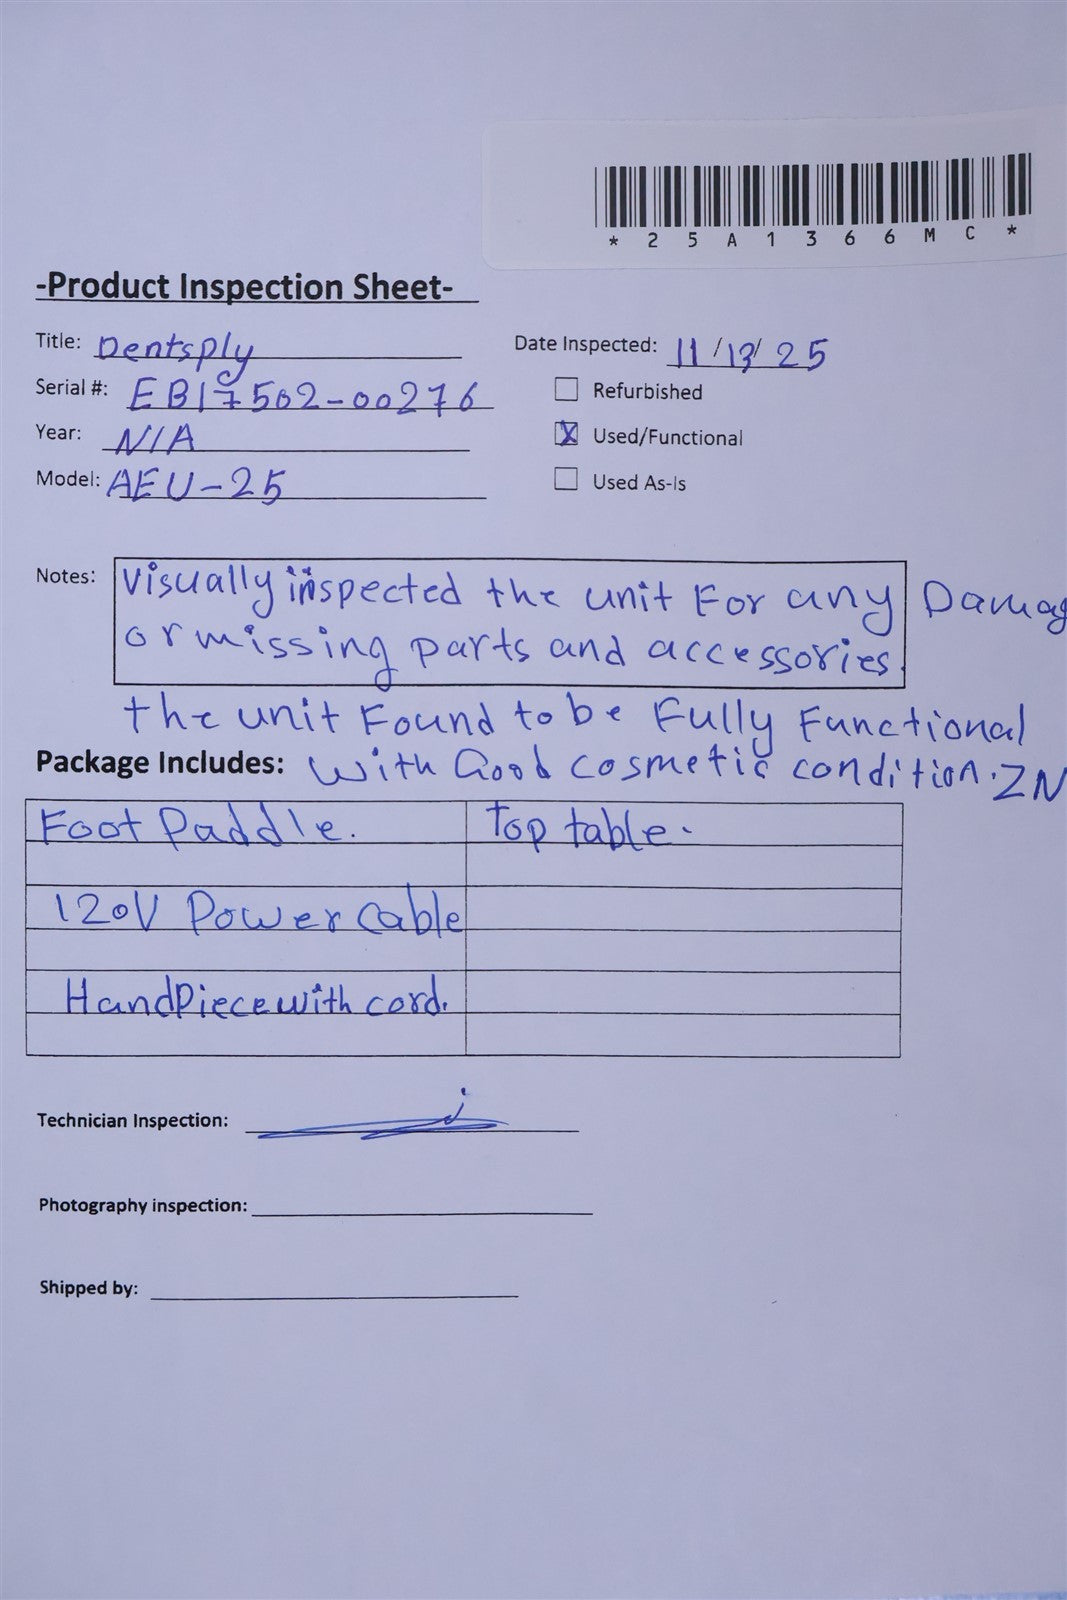 * 2 5 A 1 3 6 6 M C *
-Product Inspection Sheet-
Title: Dentsply
Date Inspected: 11/13/25
Serial #: EB17502-00276
Refurbished
Year: N/A
Used/Functional
Model: AEU-25
Used As-Is
Notes: Visually inspected the unit For any Damag
or missing parts and accessories.
the unit Found to be Fully Functional
Package Includes: with Good cosmetic condition. ZN
Foot Paddle. Top table.
120V Power Cable
HandPiece with cord.
Technician Inspection:
Photography inspection:
Shipped by: